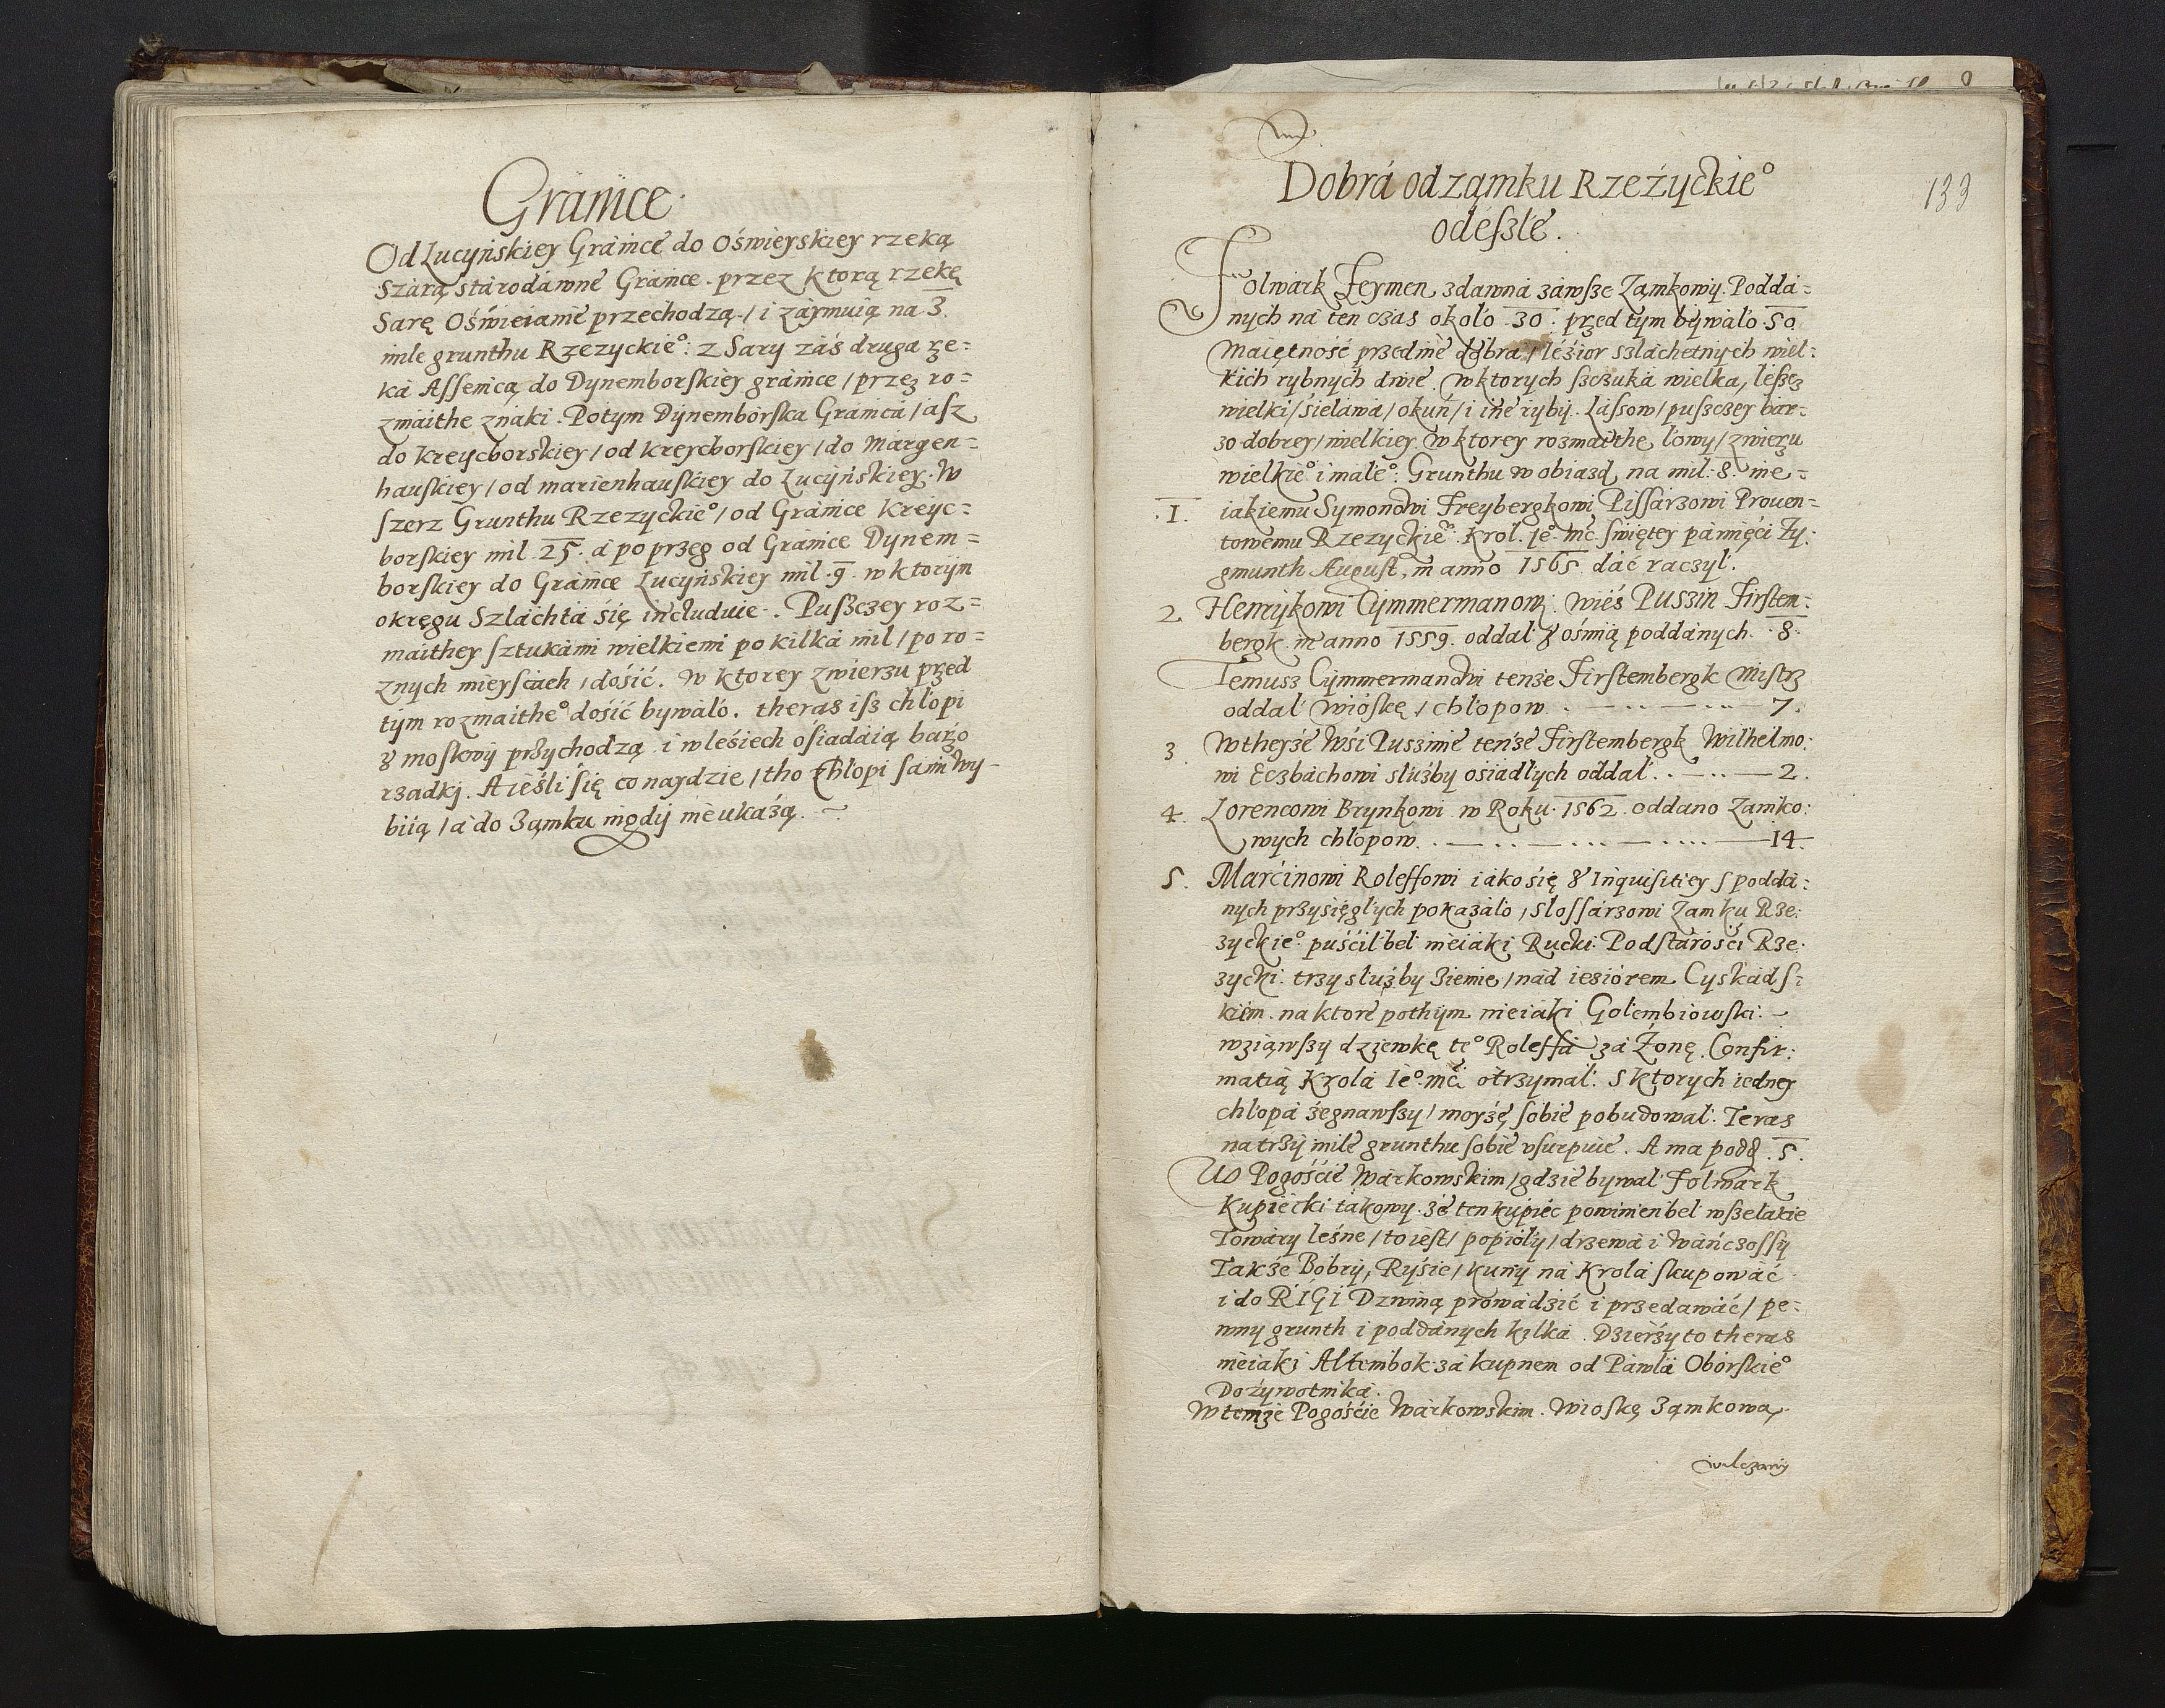 Granice.
Od Lucyńskiey Granice do Oświeyskiey rzeką
Szarą starodawne Granice. przez ktorą rzekę
Sarę Oświeianie przechodzą / i zaymuią na 3.
mile grunthu Rzezyckie°: z Sary záś druga rze=
ka Assenicą do Dynemborskiey granice / przez ro=
zmaithe znaki. Potym Dynemborska Granica / asz
do kreycborskiey / od kreycborskiey / do Margen=
hauskiey / od marienhauskiey do Lucyńskiey. W
szerz Grunthu Rzezyckie° / od Granice kreyc=
borskiey mil 25. á poprzeg od Granice Dynem=
borskiey do Granice Lucyńskiey mil .9. w ktorym
okręgu Szlachta się includuie. Puszczey roz=
maithey sztukami wielkiemi po kilká mil / po ro=
znych mieyscach / dosić. W ktorey zwierzu przed
tym rozmaithe° dosić bywało. theras isz chłopi
z moskwy przychodzą i w lesiech osiadáią barzo
rzadkj. A ieśli się co naydzie / tho chłopi sami wy-
biią / á do Zamku nigdy nie ukażą.
133
Dobrá od zamku Rzeżyckie°
odeszłe.
Folwark Feymen zdawna zawsze Zamkowy. Poddá=
nych ná ten czas około 30. przed tym bywało 50
Maiętność przednie dobra / Ieżior szlachetnych wiel=
kich rybnych dwie. W ktorych szczuká wielka, leszcz
wielki / sielawá / okuń / i ine ryby. Lassow / puszczey bar=
zo dobrey / wielkiey w ktorey rozmaithe łowy / zwierzu
wielkie° i małe°: Grunthu w obiazd na mil .8. nie=
1. iakiemu Symonowi Freybergkowi Pissarzowi Prouen=
towemu Rzezyckie°. Krol. Je° Mć. swiętey pámięći Zy:
gmunth August, in anno 1565 dáć raczył.
2. Henrykowi Cymmermanowi. Wieś Puszin Firsten:
bergk. in anno 1559. oddał z ośmią poddánych. .8.
Temusz Cymmermanowi tenże Firstembergk Mistrz
oddał wioskę / chłopow 7.
3. W theyże wśi Puszinie tenże Firstembergk Wilhelmo:
wi Eczbachowi służby osiadłych oddał 2.
4. Lorencowi Brynkowi w Roku 1562. oddano Zamko:
wych chłopow 14.
5. Marćinowi Roleffowi iáko się z Inquisitiey s poddá:
nych przysięgłych pokazáło / Slossárzowi Zamku Rze:
zyckie°. puśćił beł nieiáki Rucki Podstarośći Rze:
zycki. trzy służby Ziemie / nád ieziorem Cyskáds:
kiem. na ktore pothym nieiáki Golembiowski.
wziąwszy dziewkę te° Roleffá zá Żonę. Confir:
matią Krolá Ie°. mći otrzymał. S ktorych iedney
chłopá żegnawszy / moyżę sobie pobudował. Teras
na trzy mile grunthu sobie vsurpuie. A ma podd. 5.
W Pogośćie Wárkowskim / gdzie bywał Folwárk
Kupiecki tákowy. że ten kupiec powinien beł wszelakie
Towáry leśne / to iest / popioły / drzewá i wáńczossy
Także Bobry, Ryśie / kuny ná Krolá skupowáć
i do RIGI Dzwiną prowádzić i przedawáć / pe=
wny grunth i poddánych kilká. Dzierży to theras
nieiáki Altembok zá kupnem od Páwłá Oborskie°
Dożywotniká.
W temże Pogośćie Wárkowskim. Wioskę Zamkową.
wilczany